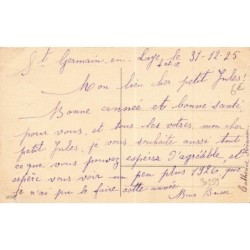 St Germain en Laye le 31-12-25
Mon bien cher petit Jules!
Bonne année et bonne santé
pour vous, et tous les votres, mon cher
petit Jules, je vous souhaite aussi tout
ce que vous pouvez espérer d'agréable, et
espère vous voir un peu plus 1926 que
je n'ai pu le faire cette année